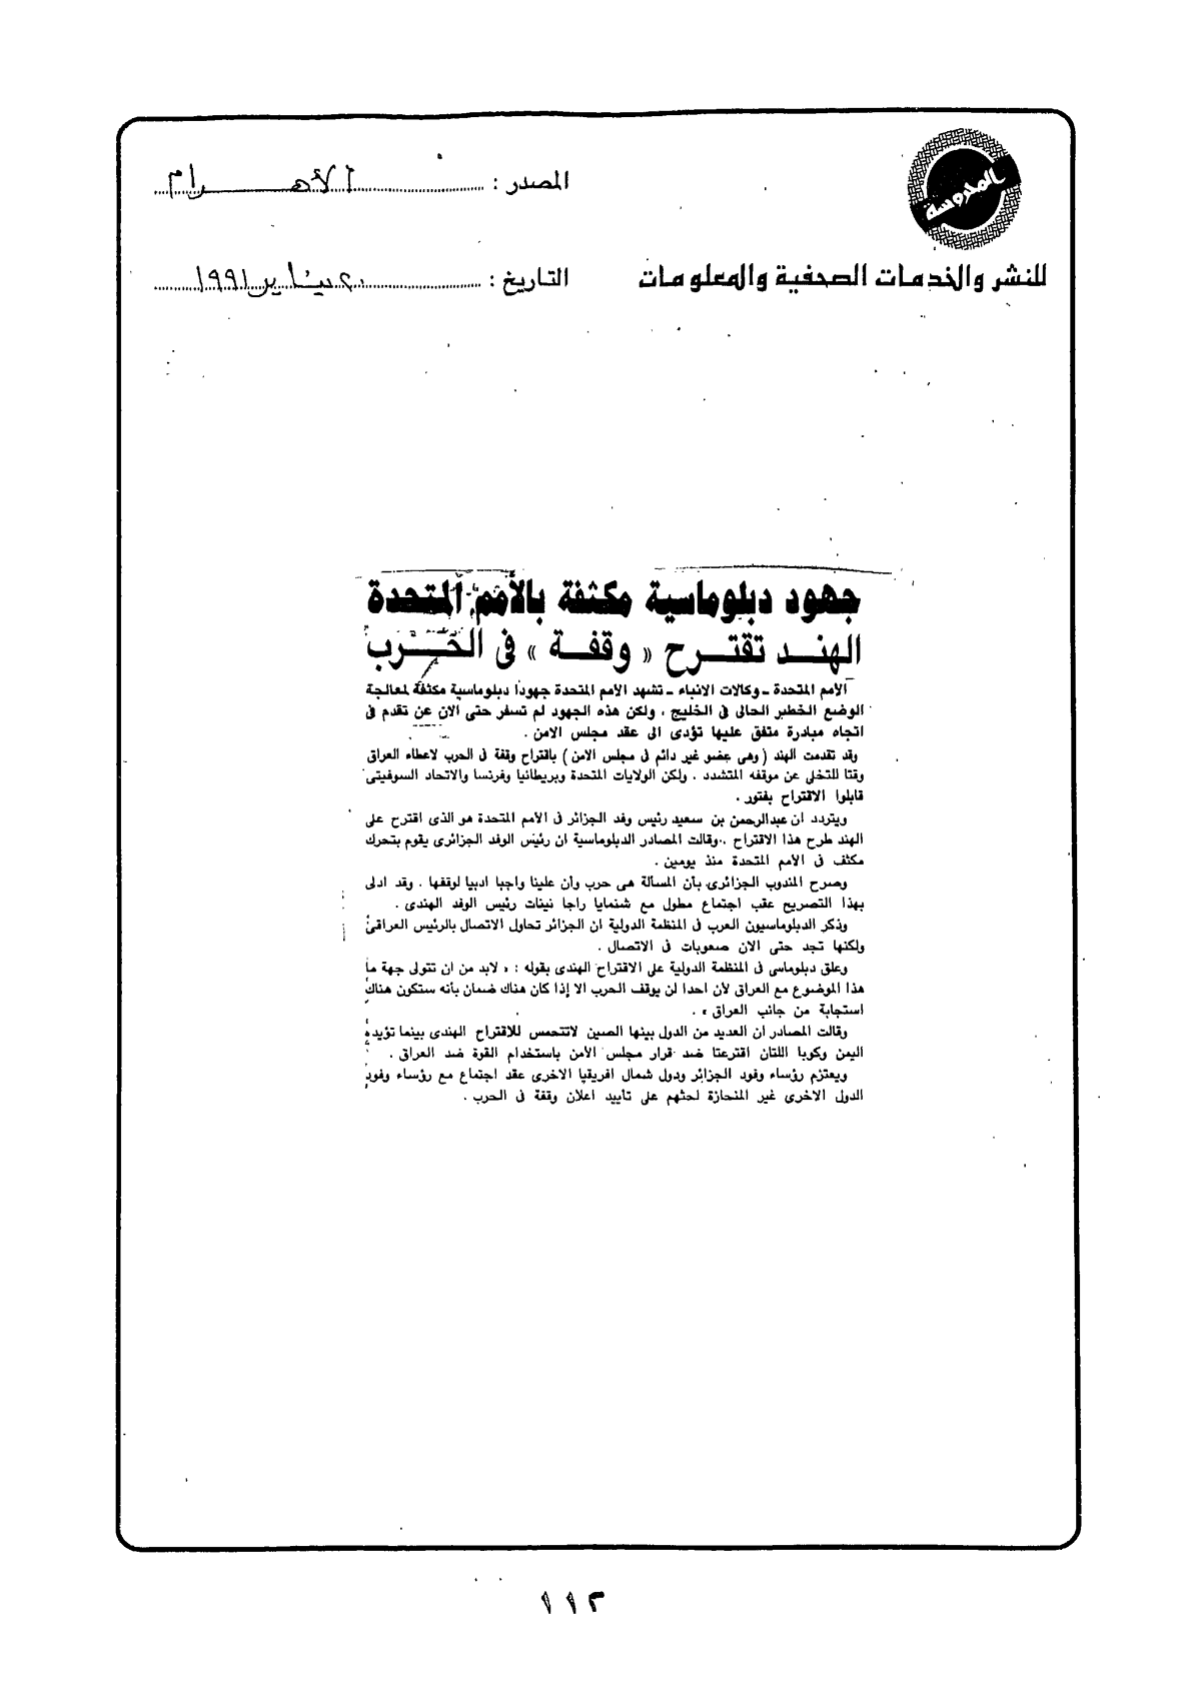 المحروسة
المصدر : الأهرام
للنشر والخدمات الصحفية والمعلومات
التاريخ : ٢٠ يناير ١٩٩١
جهود دبلوماسية مكثفة بالأمم المتحدة
الهند تقترح « وقفة » فى الحرب
الأمم المتحدة ـ وكالات الانباء ـ تشهد الأمم المتحدة جهودا دبلوماسية مكثفة لمعالجة
الوضع الخطير الحالى فى الخليج ، ولكن هذه الجهود لم تسفر حتى الان عن تقدم فى
اتجاه مبادرة متفق عليها تؤدى الى عقد مجلس الامن .
وقد تقدمت الهند ( وهى عضو غير دائم فى مجلس الامن ) باقتراح وقفة فى الحرب لاعطاء العراق
وقتا للتخلى عن موقفه المتشدد ، ولكن الولايات المتحدة وبريطانيا وفرنسا والاتحاد السوفيتى
قابلوا الاقتراح بفتور .
ويتردد ان عبدالرحمن بن سعيد رئيس وفد الجزائر فى الأمم المتحدة هو الذى اقترح على
الهند طرح هذا الاقتراح . وقالت المصادر الدبلوماسية ان رئيس الوفد الجزائرى يقوم بتحرك
مكثف فى الأمم المتحدة منذ يومين .
وصرح المندوب الجزائرى بأن المسألة هى حرب وأن علينا واجبا ادبيا لوقفها . وقد ادلى
بهذا التصريح عقب اجتماع مطول مع شنمايا راجا نينات رئيس الوفد الهندى .
وذكر الدبلوماسيون العرب فى المنظمة الدولية ان الجزائر تحاول الاتصال بالرئيس العراقى
ولكنها تجد حتى الان صعوبات فى الاتصال .
وعلق دبلوماسى فى المنظمة الدولية على الاقتراح الهندى بقوله : « لابد من ان تتولى جهة ما
هذا الموضوع مع العراق لأن احدا لن يوقف الحرب الا إذا كان هناك ضمان بأنه ستكون هناك
استجابة من جانب العراق » .
وقالت المصادر ان العديد من الدول بينها الصين لاتتحمس للاقتراح الهندى بينما تؤيده
اليمن وكوبا اللتان اقترعتا ضد قرار مجلس الأمن باستخدام القوة ضد العراق .
ويعتزم رؤساء وفود الجزائر ودول شمال افريقيا الاخرى عقد اجتماع مع رؤساء وفود
الدول الاخرى غير المنحازة لحثهم على تأييد اعلان وقفة فى الحرب .
١١٢